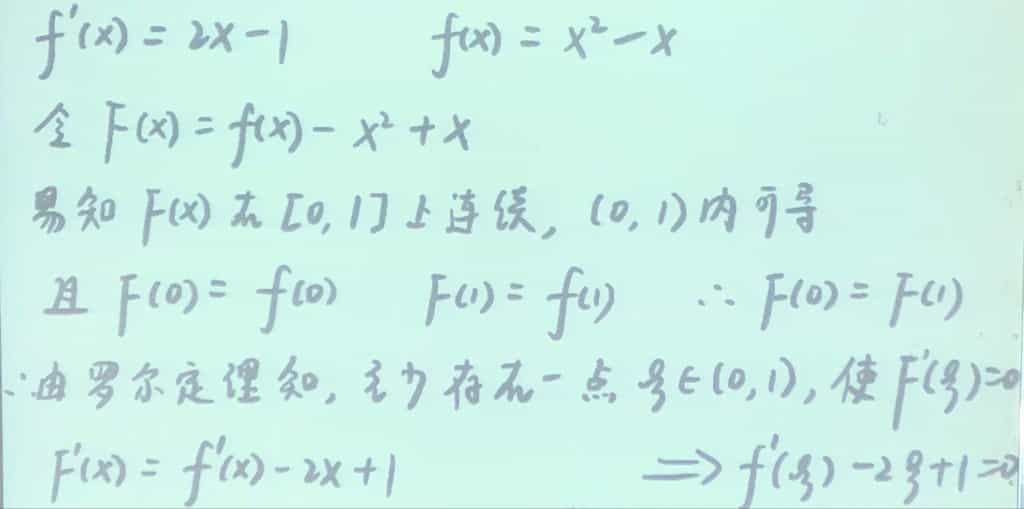 f'(x) = 2x-1 f(x) = x²-x
令 F(x) = f(x) - x² + x
易知 F(x) 在 [0, 1] 上连续, (0, 1) 内可导
且 F(0) = f(0) F(1) = f(1) ∴ F(0) = F(1)
∴由罗尔定理知, 至少存在一点 ξ∈(0, 1), 使 F'(ξ)=0
F'(x) = f'(x) - 2x + 1 ⟹ f'(ξ) - 2ξ + 1 = 0